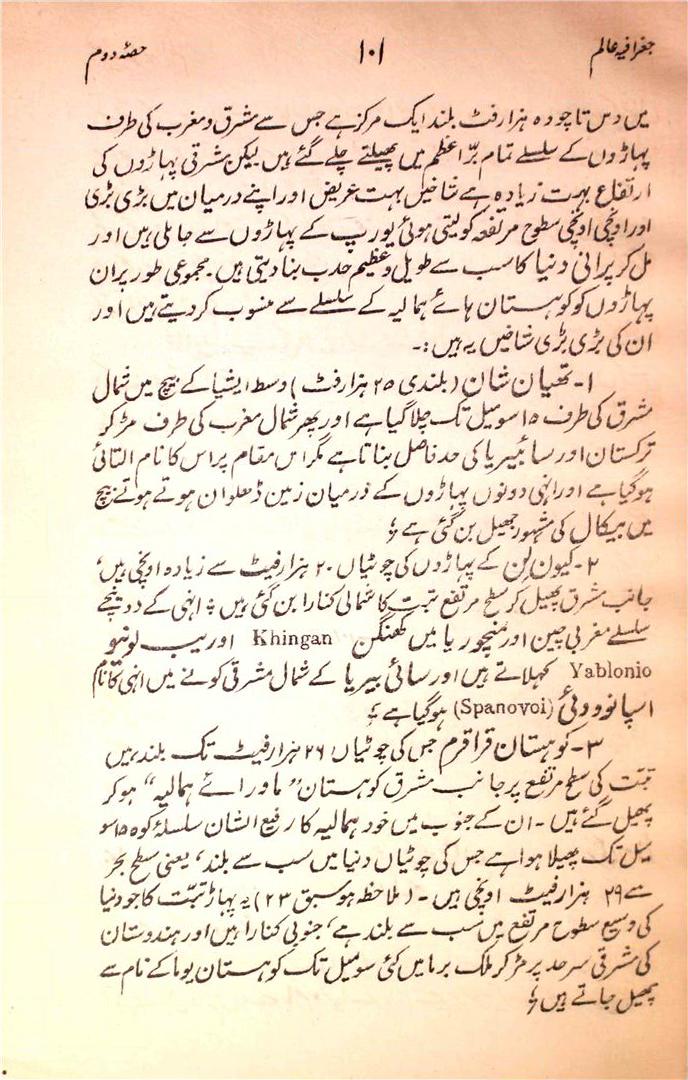 جغرافیہ عالم ۱۰۱ حصّۂ دوم
میں دس تا چودہ ہزار فٹ بلند ایک مرکز ہے جس سے مشرق و مغرب کی طرف
پہاڑوں کے سلسلے تمام برّ اعظم میں پھیلتے چلے گئے ہیں لیکن مشرقی پہاڑوں کی
ارتفاع بہت زیادہ ہے شاخیں بہت عریض اور اپنے درمیان میں بڑی بڑی
اور اونچی اونچی سطوح مرتفعہ کو لیتی ہوئی یورپ کے پہاڑوں سے جا ملی ہیں اور
مل کر پرانی دنیا کا سب سے طویل و عظیم حدب بنا دیتی ہیں۔ مجموعی طور پر ان
پہاڑوں کو کوہستان ہائے ہمالیہ کے سلسلے سے منسوب کر دیتے ہیں اور
ان کی بڑی بڑی شاخیں یہ ہیں :۔
۱۔ تھیان شان (بلندی ۲۵ ہزار فٹ) وسط ایشیا کے بیچ میں شمال
مشرق کی طرف ۱۵ سو میل تک چلا گیا ہے اور پھر شمال مغرب کی طرف مڑ کر
ترکستان اور سائبیریا کی حد فاصل بناتا ہے مگر اس مقام پر اس کا نام التائی
ہو گیا ہے اور انہی دونوں پہاڑوں کے درمیان زمین ڈھلوان ہوتے ہوتے بیچ
میں بیکال کی مشہور جھیل بن گئی ہے ؛
۲۔ کیون لن کے پہاڑوں کی چوٹیاں ۲۰ ہزار فیٹ سے زیادہ اونچی ہیں،
جانب مشرق پھیل کر سطح مرتفع تبت کا شمالی کنارا بن گئی ہیں ؛ انہی کے دو نیچے
سلسلے مغربی چین اور منچوریا میں کھنگن Khingan اور یب لونیو
Yablonio کہلاتے ہیں اور سائی بیریا کے شمال مشرقی کونے میں انہی کا نام
اسپانووئی (Spanovoi) ہو گیا ہے ؛
۳۔ کوہستان قراقرم جس کی چوٹیاں ۲۶ ہزار فیٹ تک بلند ہیں
تبّت کی سطح مرتفع پر جانب مشرق کوہستان ”ماورائے ہمالیہ“ ہو کر
پھیل گئے ہیں۔ ان کے جنوب میں خود ہمالیہ کا رفیع الشان سلسلۂ کوہ ۱۵ سو
میل تک پھیلا ہوا ہے جس کی چوٹیاں دنیا میں سب سے بلند، یعنی سطح بحر
سے ۲۹ ہزار فیٹ اونچی ہیں۔ (ملاحظہ ہو سبق ۲۳) یہ پہاڑ تبّت کا جو دنیا
کی وسیع سطوح مرتفع میں سب سے بلند ہے، جنوبی کنارا ہیں اور ہندوستان
کی مشرقی سرحد پر مڑ کر ملک برما میں کئی سو میل تک کوہستان یوما کے نام سے
پھیل جاتے ہیں ؛